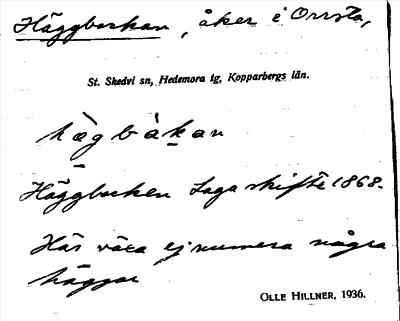 Häggbackan, åker i Orrsta,
St. Skedvi sn, Hedemora tg, Kopparbergs län.
hæ̀gbákan
Häggbacken Laga skifte 1868.
Här växa ej numera några
häggar
OLLE HILLNER, 1936.